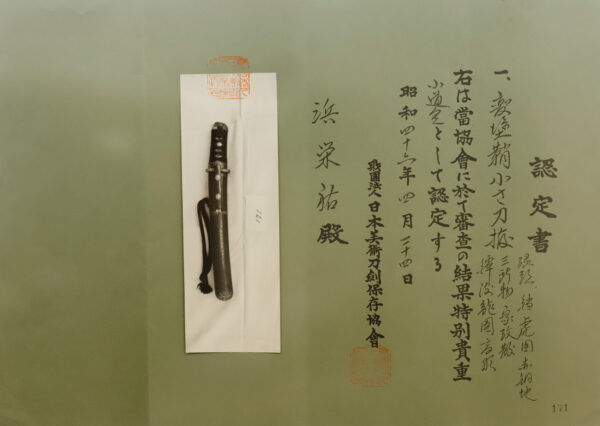 認定書
一、変塗鞘小さ刀拵
縁頭、虎図赤銅地
三所物 家紋散
波龍図高彫
右は當協會に於て審査の結果特別貴重
小道具として認定する
昭和四十六年四月二十四日
財團法人日本美術刀劍保存協會
浜栄祐殿
171
171